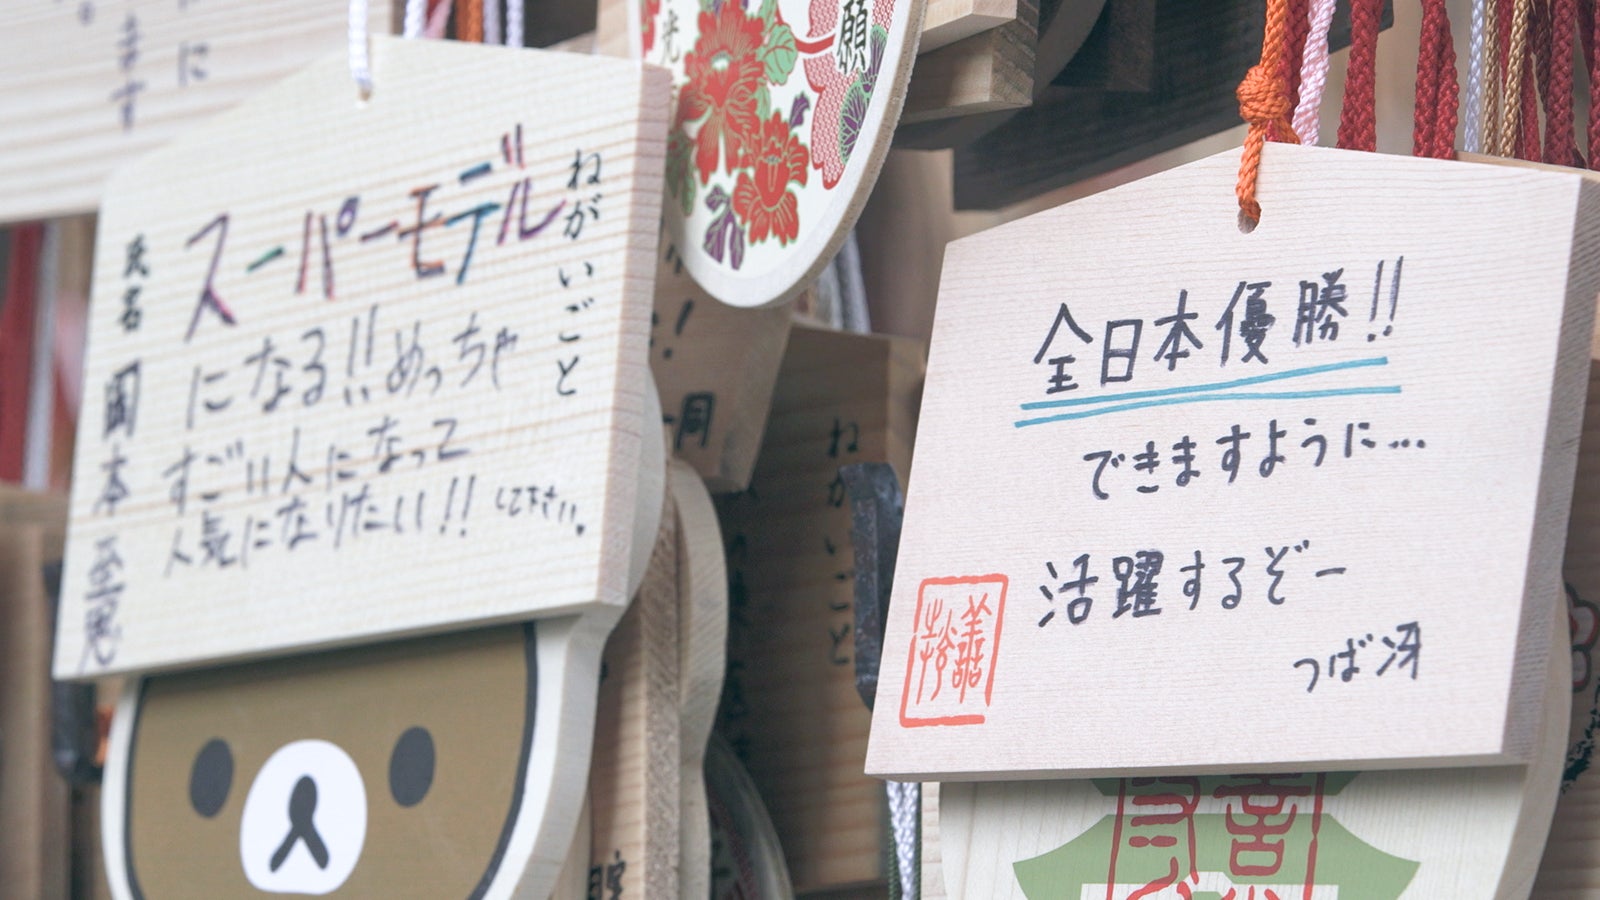 ねがいごと
スーパーモデル
になる!!めっちゃ
すごい人になって
人気になりたい!!して下さい。
氏名
願
光
全日本優勝!!
できますように…
活躍するぞー
つば冴
ねがいごと
同
ます
に